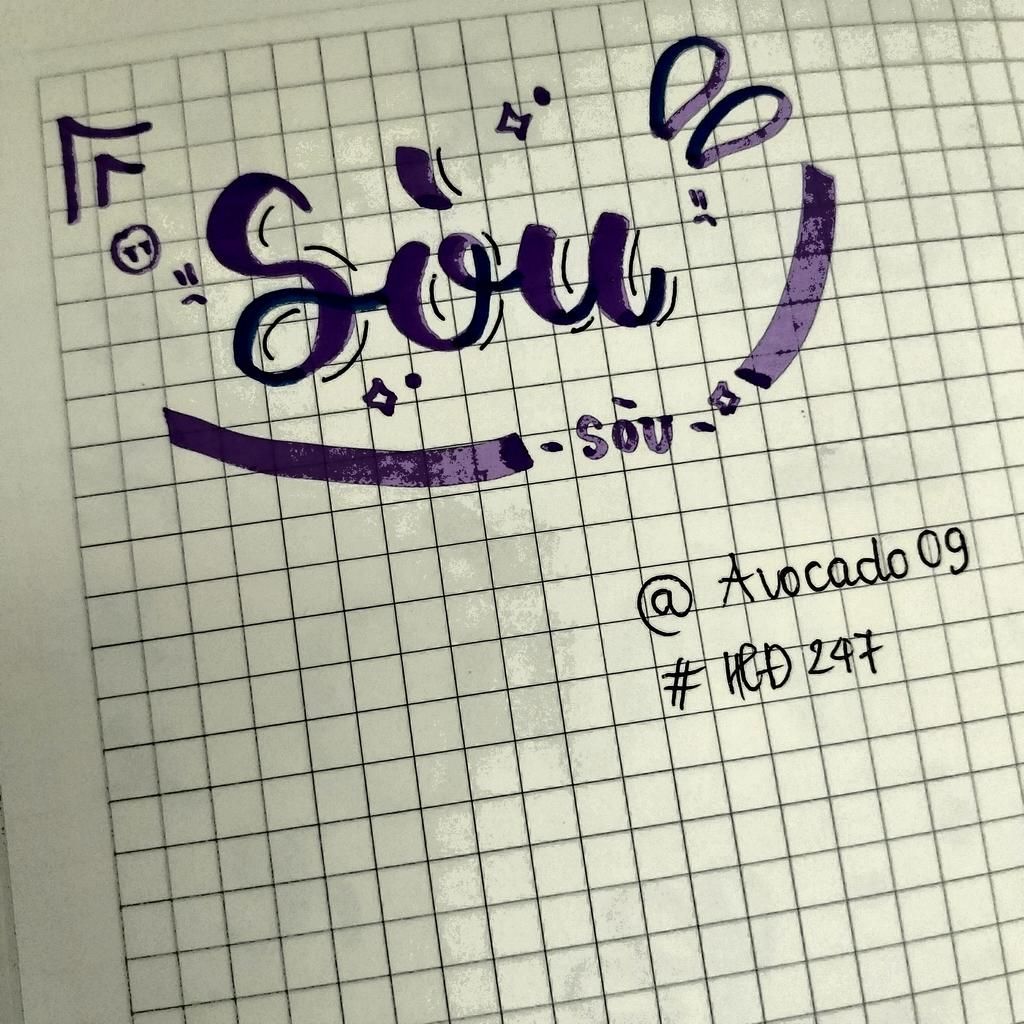 Sòu
- sòu -
@ Avocado 09
# HCD 247